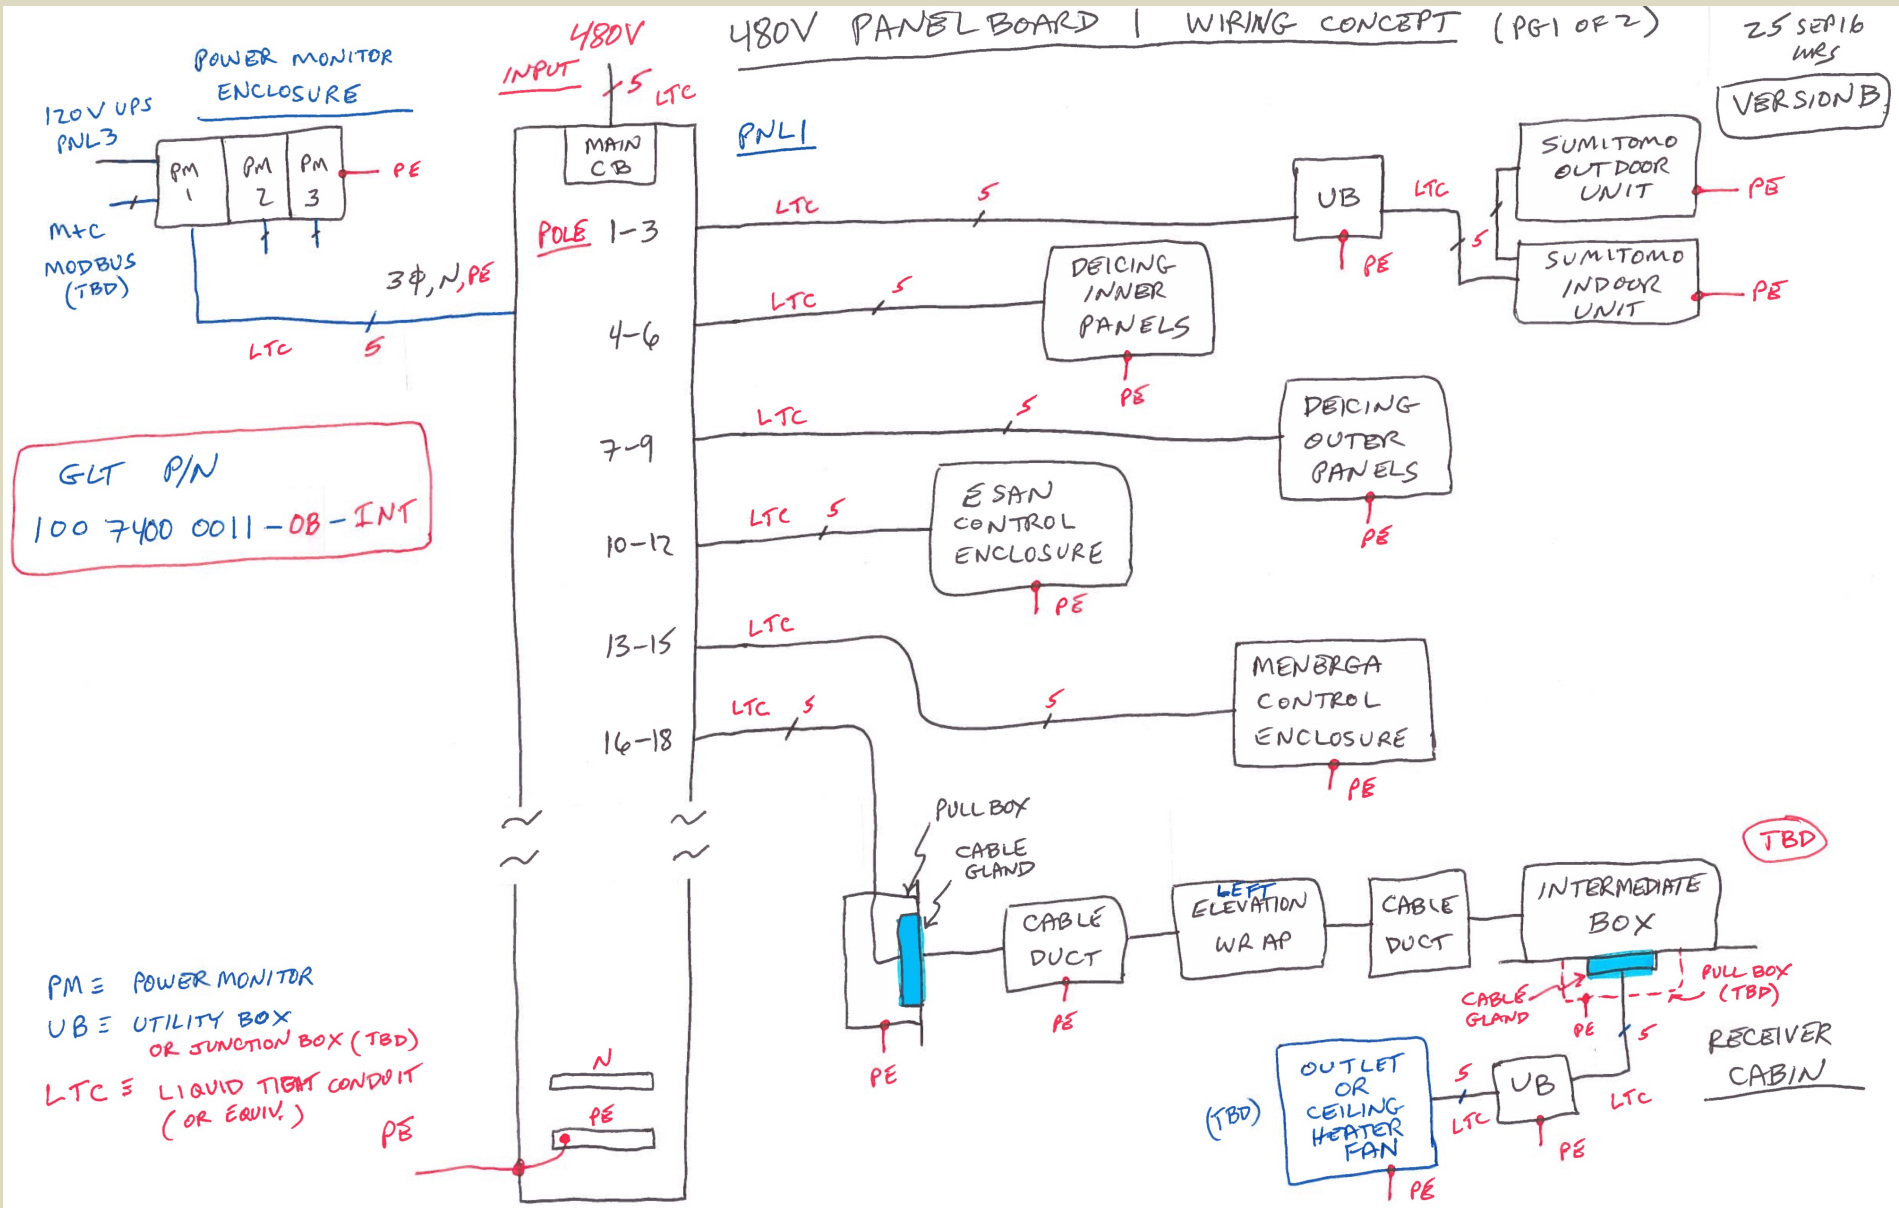 480V PANELBOARD 1 WIRING CONCEPT (PG 1 OF 2)
25 SEP16
WRS
VERSION B
480V
INPUT
5
LTC
POWER MONITOR
ENCLOSURE
120V UPS
PNL3
PM
1
PM
2
PM
3
PE
M+C
MODBUS
(TBD)
3ϕ, N, PE
LTC
5
GLT P/N
100 7400 0011-0B-INT
MAIN
CB
PNL1
POLE 1-3
LTC
5
UB
PE
LTC
5
SUMITOMO
OUTDOOR
UNIT
PE
SUMITOMO
INDOOR
UNIT
PE
4-6
LTC
5
DEICING
INNER
PANELS
PE
7-9
LTC
5
DEICING
OUTER
PANELS
PE
10-12
LTC
5
ESAN
CONTROL
ENCLOSURE
PE
13-15
LTC
5
MENERGA
CONTROL
ENCLOSURE
PE
16-18
LTC
5
PULL BOX
CABLE
GLAND
PE
CABLE
DUCT
PE
LEFT
ELEVATION
WRAP
CABLE
DUCT
TBD
INTERMEDIATE
BOX
CABLE
GLAND
PE
PULL BOX
(TBD)
5
LTC
RECEIVER
CABIN
UB
PE
5
LTC
(TBD)
OUTLET
OR
CEILING
HEATER
FAN
PE
PM ≡ POWER MONITOR
UB ≡ UTILITY BOX
OR JUNCTION BOX (TBD)
LTC ≡ LIQUID TIGHT CONDUIT
(OR EQUIV.)
PE
N
PE